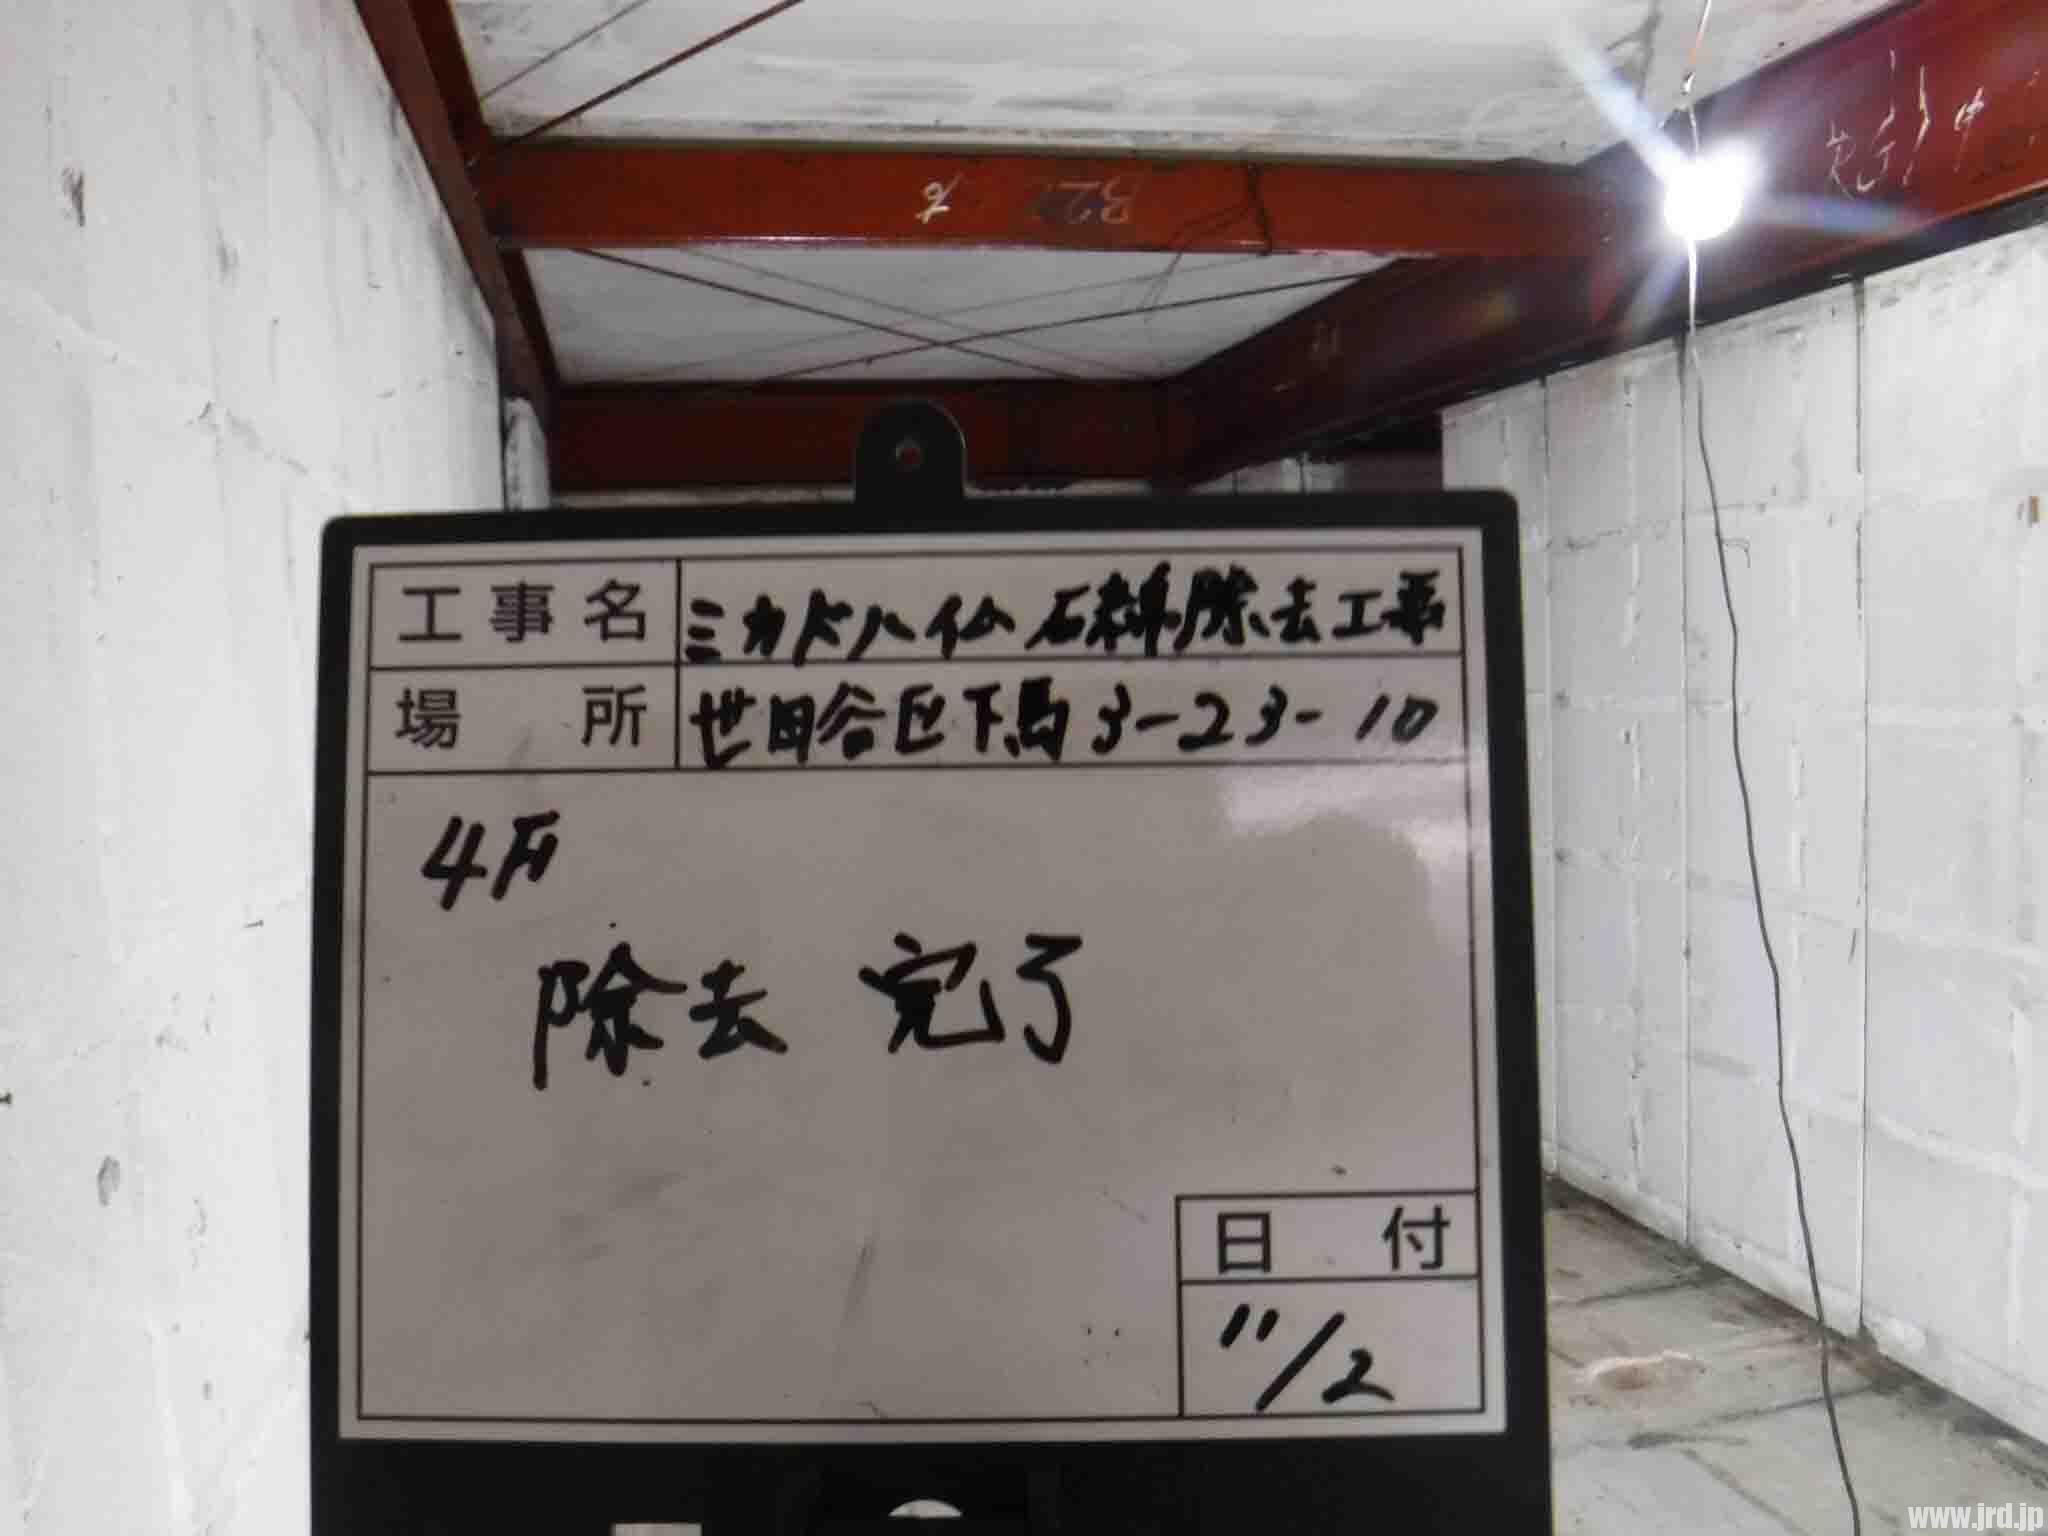 B22
工事名 ミカドハイム石綿除去工事
場所 世田谷区下馬3-23-10
4F
除去 完了
日付
11/2
www.jrd.jp